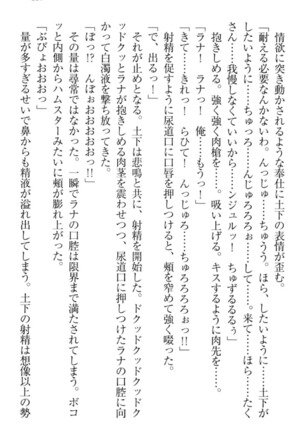 情欲に突き動かされるような奉仕に土下の表情が歪む。
「耐える必要なんかないわ。んっじゅ……ちゅうう。ほら、しないように……土下が
したいように……ちゅっろ……んじゅるろろぉ……して……。来て……ほら……たく
さん……我慢しなくていいから……ンジュルッ！　ちゅずるるるぅ」
抱きしめる。強く強く肉槍を――。吸い上げる。キスするように肉先を……。
「ラナ！　ラナっ！　俺……もうっ！」
「きて……きれっ！　らひて！　んっじゅる……ちゅろろろろぉっ！！」
射精を促すように尿道口に口唇を押しつけると、頬を窄めて強く啜った。
「で、出るっ！」
それが止めとなる。土下は悲鳴と共に、射精を開始した。ドクックドクックドク
ッドクッとラナが抱きしめる肉茎を震わせつつ、尿道口に押しつけたラナの口腔に向
かって白濁液を撃ち放ってきた。
「ぼっ!?　んぼぉおおおおおっ!!」
その量は尋常ではなかった。一瞬でラナの口腔は限界まで満たされてしまう。ボコ
ッと内側からハムスターみたいに頬が膨れ上がった。
「ぶびょおおおっ」
量が多すぎるせいで鼻からも精液が溢れ出してしまう。土下の射精は想像以上の勢